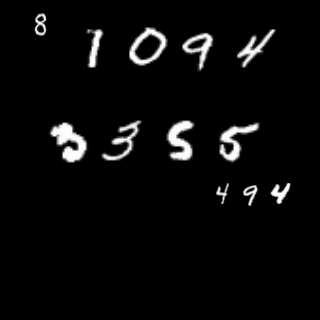 8
1094
3355
494